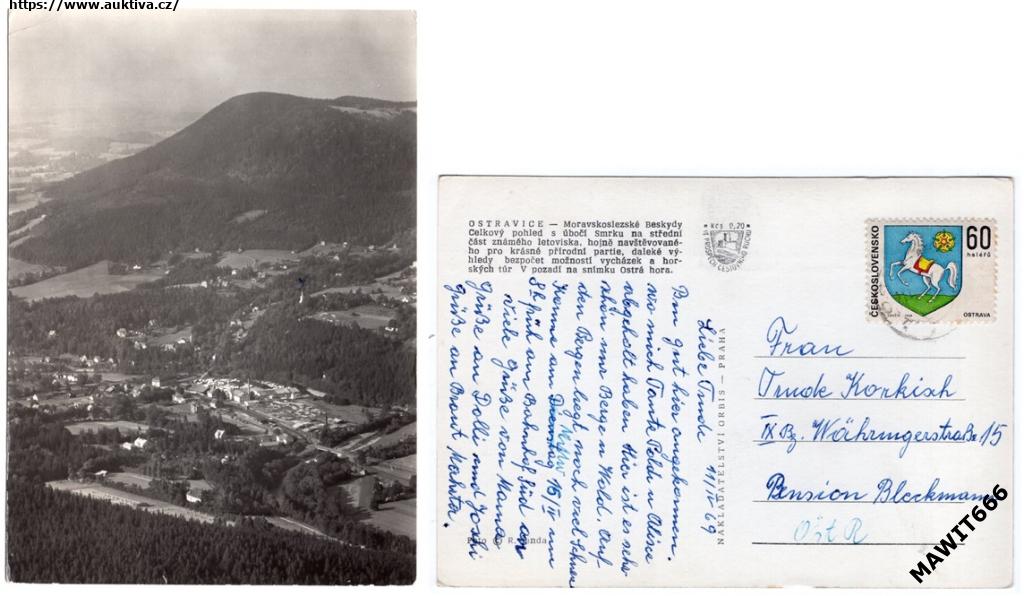 https://www.auktiva.cz/
OSTRAVICE — Moravskoslezské Beskydy
Celkový pohled s úbočí Smrku na střední
část známého letoviska, hojně navštěvované-
ho pro krásné přírodní partie, daleké vý-
hledy bezpočet možností vycházek a hor-
ských túr V pozadí na snímku Ostrá hora.
Kčs 0,20
VE PROSPĚCH CESTOVNÍHO RUCHU
ČESKOSLOVENSKO
60
haléřů
OSTRAVA
NAKLADATELSTVÍ ORBIS — PRAHA
Liebe Trude 11/IV 69
Bin gut hier angekommen.
wo mich Tante Poldi u Alice
abgeholt haben Hier ist es sehr
schön nur Berge u Wald. Auf
den Bergen liegt noch viel Schnee
Komme am Dienstag 15/IV um
8h früh am Bahnhof Süd an
Viele Grüße von Mama
Grüße an Dolli und Joschi
Grüße an Braut,
Foto © R. Janda
Frau
Trude Korkisch
IX Bz. Währingerstraße 15
Pension Bleckmann
Öst R
MAWIT666